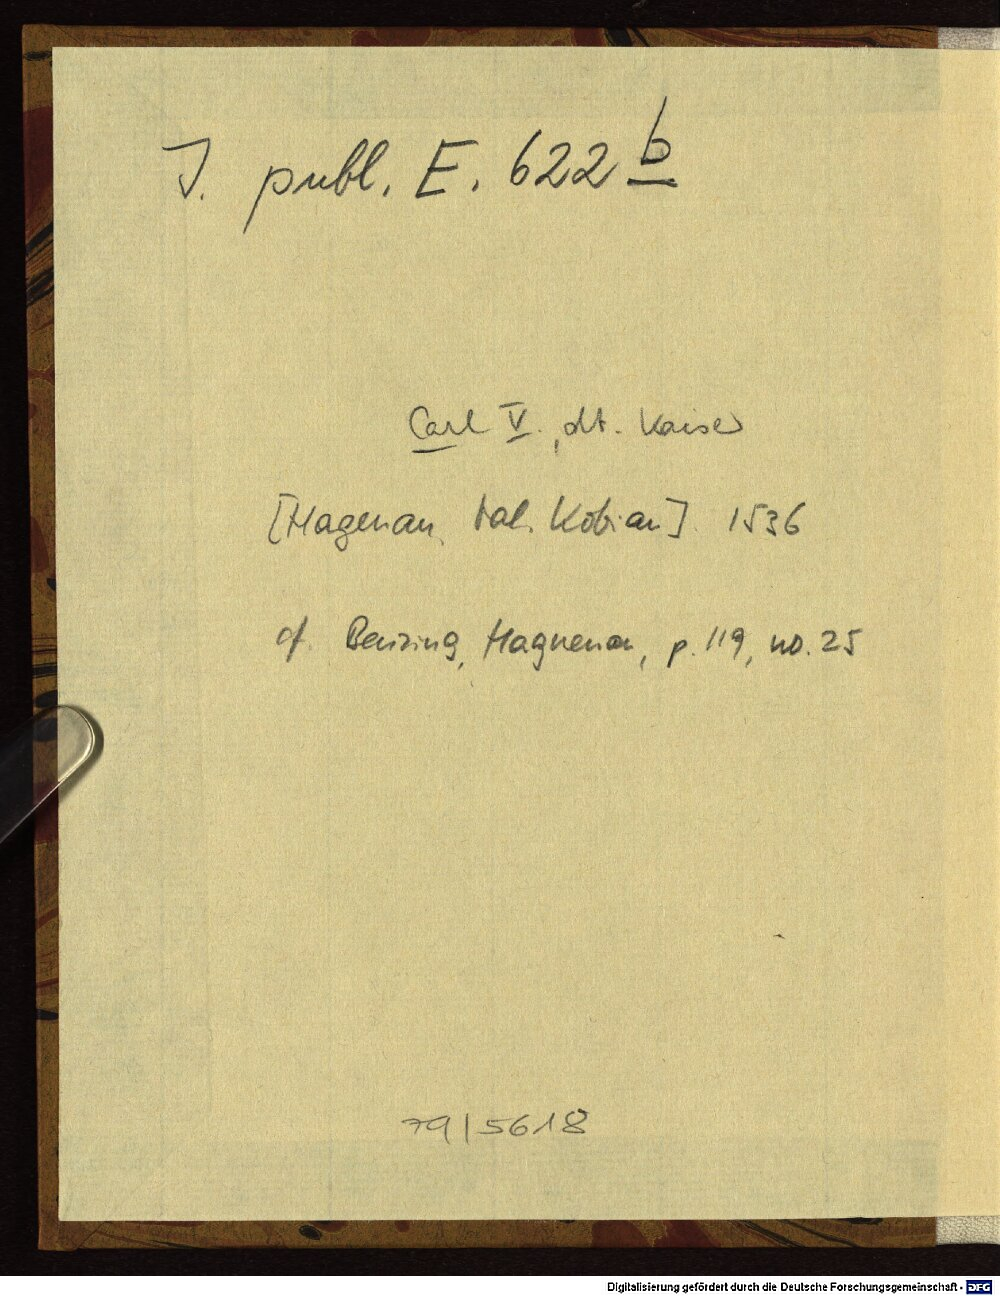 J. publ. E. 622 b
Carl V., dt. Kaiser
[Hagenau, Val. Kobian]. 1536
cf. Benzing, Haguenau, p. 119, no. 25
79/5618
Digitalisierung gefördert durch die Deutsche Forschungsgemeinschaft - DFG